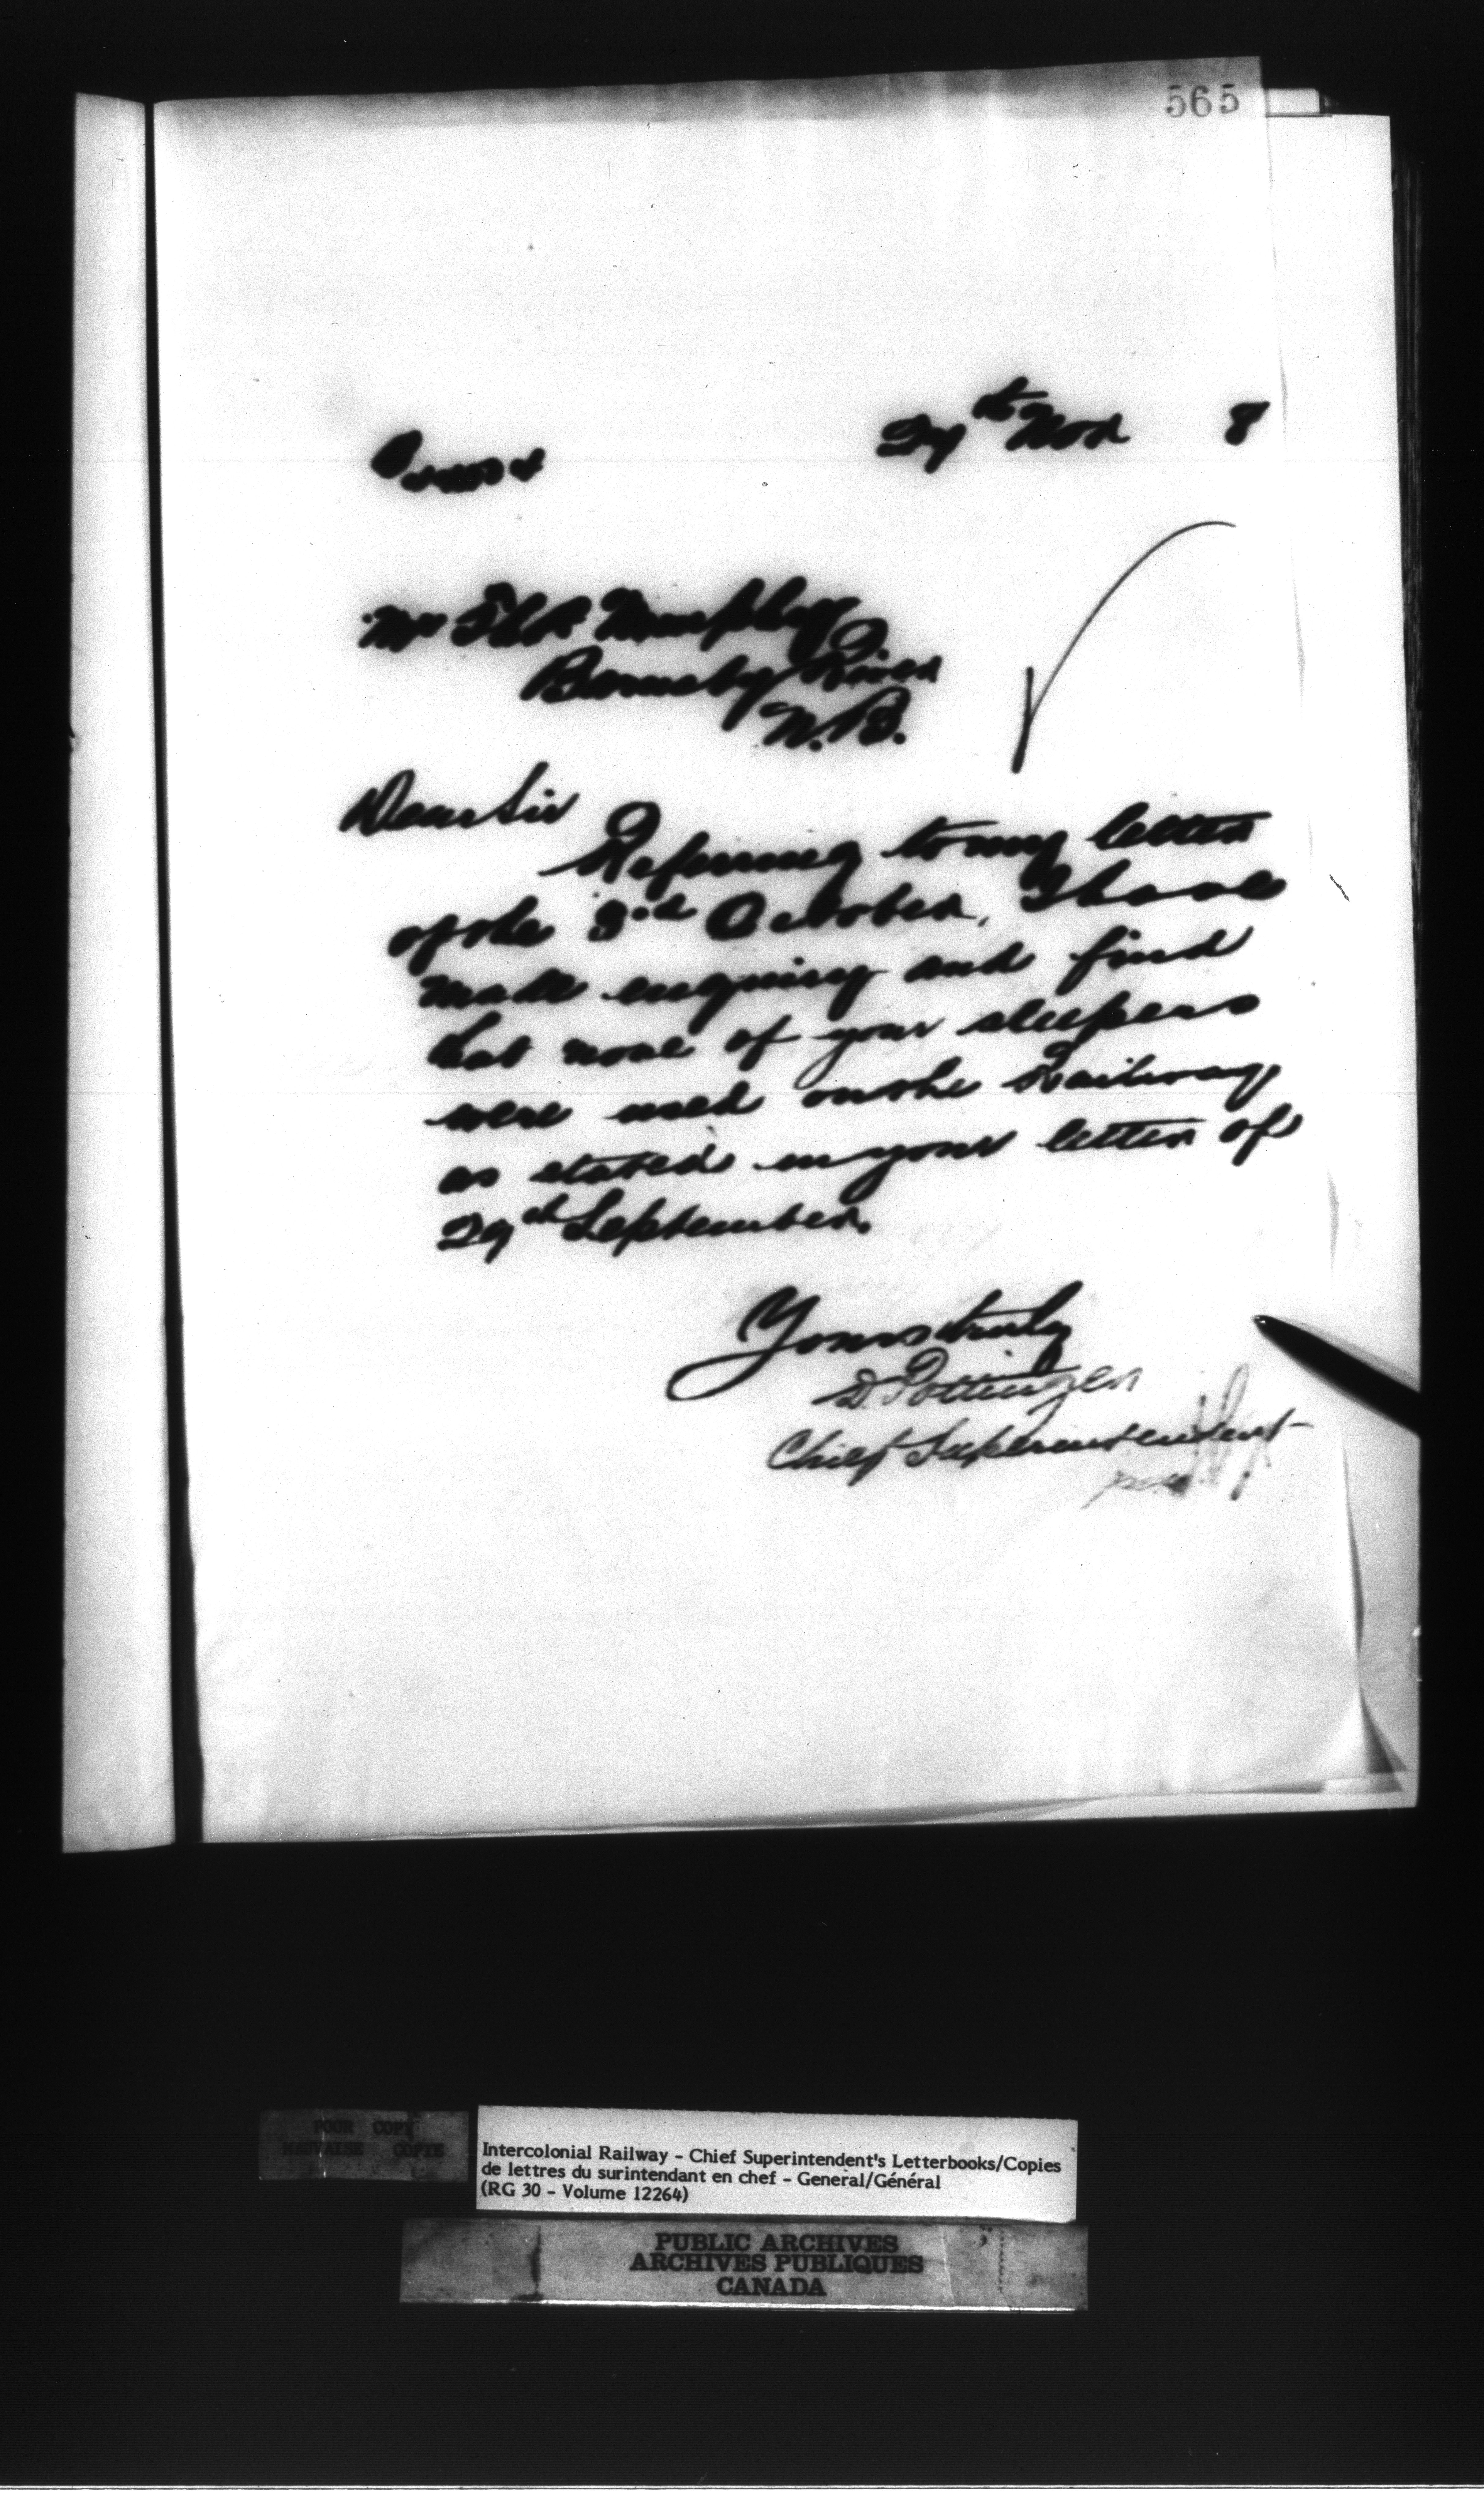 565
29th Nov 8
Mr Thos Murphy
Barnaby River
N.B.
Dear Sir
Referring to my letter
of the 3rd October, I have
made enquiry and find
that none of your sleepers
were used on the Railway
as stated in your letter of
29th September.
Yours truly
D. Pottinger
Chief Superintendent
per
POOR COPY
MAUVAISE COPIE
Intercolonial Railway - Chief Superintendent's Letterbooks/Copies
de lettres du surintendant en chef - General/Général
(RG 30 - Volume 12264)
PUBLIC ARCHIVES
ARCHIVES PUBLIQUES
CANADA